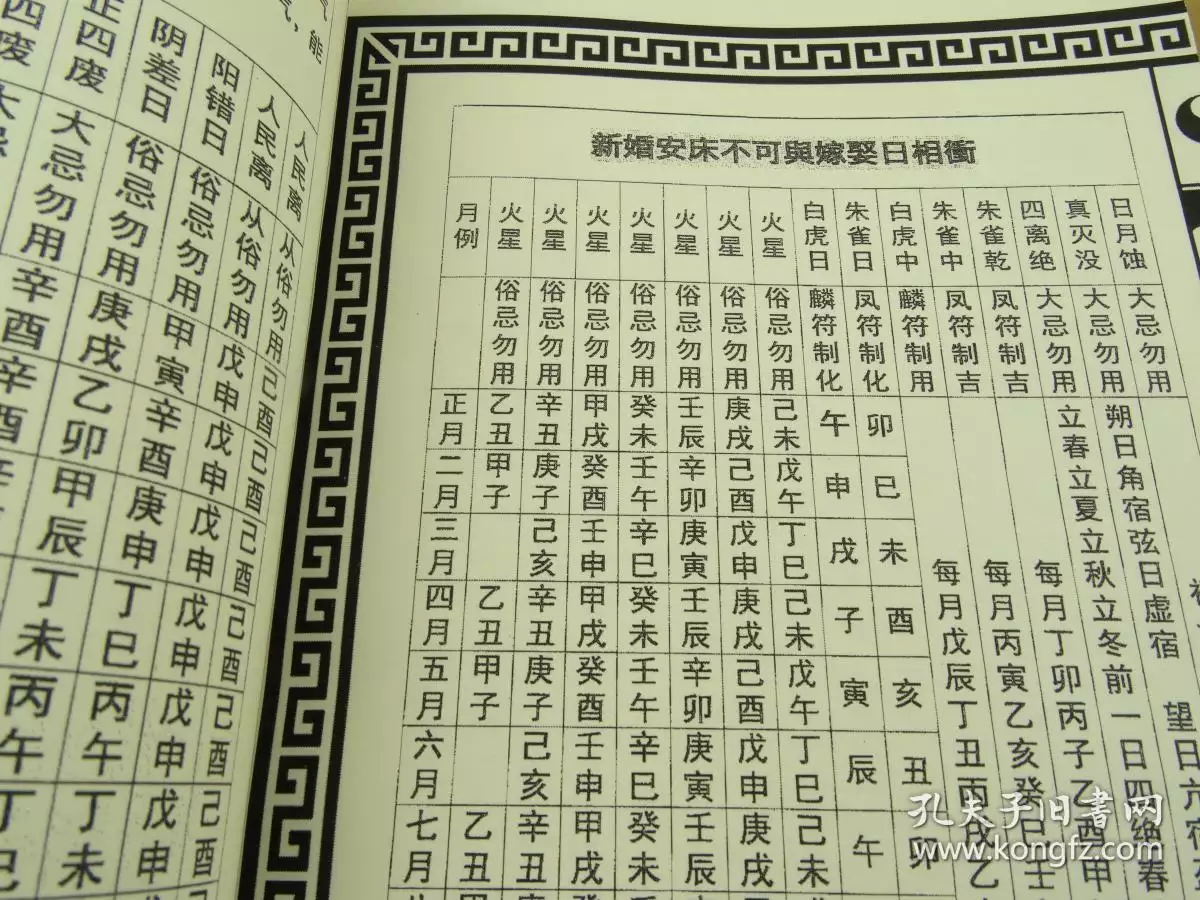 能
正四废 阴差日 阳错日 人民离 人民离
大忌勿用 俗忌勿用 俗忌勿用 从俗勿用 从俗勿用
辛酉 庚戌 甲寅 戊申 己酉
辛酉 乙卯 辛酉 戊申 己酉
甲辰 庚申 戊申 己酉
丁未 丁巳 戊申 己酉
丙午 丙午 戊申 己酉
丁巳 丁未 戊申 己酉
新婚安床不可與嫁娶日相衝
月例 火星 火星 火星 火星 火星 火星 火星 白虎日 朱雀日 白虎中 朱雀中 朱雀乾 四离绝 真灭没 日月蚀
俗忌勿用 俗忌勿用 俗忌勿用 俗忌勿用 俗忌勿用 俗忌勿用 俗忌勿用 麟符制化 凤符制化 麟符制用 凤符制吉 凤符制吉 大忌勿用 大忌勿用 大忌勿用
正月 乙丑 辛丑 甲戌 癸未 壬辰 庚戌 己未 午 卯
二月 甲子 庚子 癸酉 壬午 辛卯 己酉 戊午 申 巳
三月 己亥 壬申 辛巳 庚寅 戊申 丁巳 戌 未
四月 乙丑 辛丑 甲戌 癸未 壬辰 庚戌 己未 子 酉
五月 甲子 庚子 癸酉 壬午 辛卯 己酉 戊午 寅 亥
六月 己亥 壬申 辛巳 庚寅 戊申 丁巳 辰 丑
七月 乙丑 辛丑 甲戌 癸未 壬辰 庚戌 己未 午 卯
每月戊辰丁丑丙戌乙
每月丙寅乙亥癸巳壬
每月丁卯丙子乙酉甲
立春立夏立秋立冬前一日四绝春
朔日角宿弦日虚宿 望日亢宿
孔夫子旧書网
www.kongfz.com